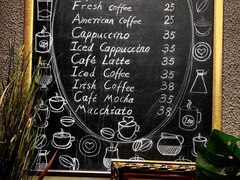 Fresh coffee 25
American coffee 25
Cappuccino 35
Iced Cappuccino 35
Café Latte 35
Iced Coffee 35
Irish Coffee 38
Café Mocha 35
Macchiato 38